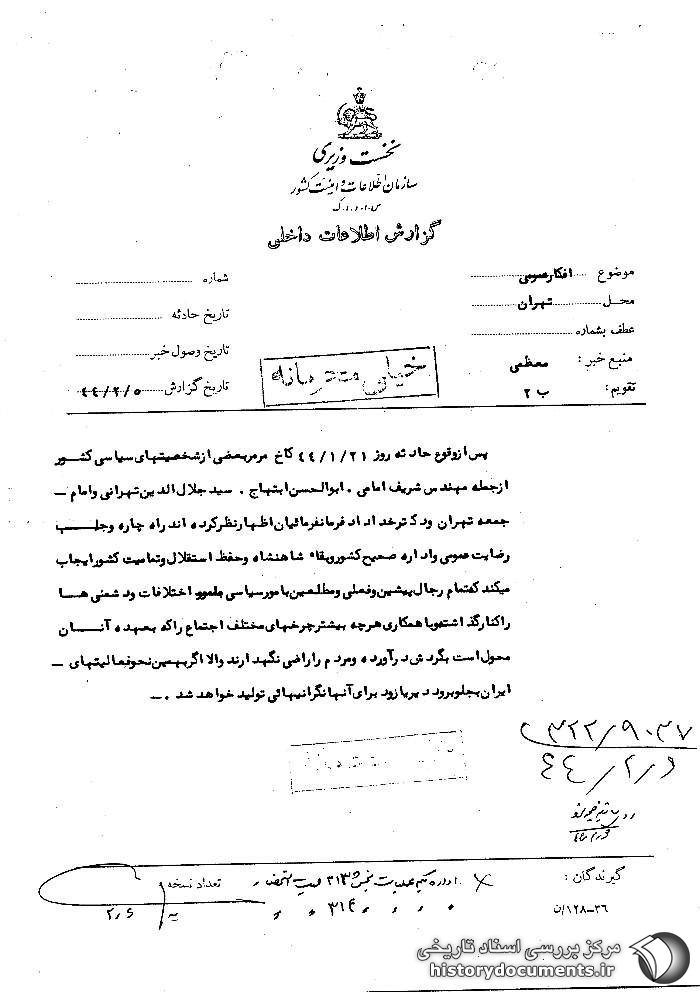 نخست وزیری
سازمان اطلاعات و امنیت کشور
س.ا.و.ا.ک
گزارش اطلاعات داخلی
موضوع افکارعمومی
محل تهران
عطف بشماره
منبع خبر : معظمی
تقویم : ب ۲
شماره
تاریخ حادثه
تاریخ وصول خبر
تاریخ گزارش ۴۴/۲/۵
خیلی محرمانه
پس ازوقوع حادثه روز ۴۴/۱/۲۱ کاخ مرمربعضی ازشخصیتهای سیاسی کشور
ازجمله مهندس شریف امامی . ابوالحسن ابتهاج . سیدجلال الدین تهرانی وامام –
جمعه تهران ودکترخداداد فرمانفرمائیان اظهارنظرکرده اند راه چاره وجلب
رضایت عمومی واداره صحیح کشوروبقاء شاهنشاه وحفظ استقلال وتمامیت کشورایجاب
میکند کهتمام رجال پیشین وفعلی ومطلعین بامورسیاسی اختلافات ودشمنی هـا
راکنارگذاشتهوباهمکاری هرچه بیشترچرخهای مختلف اجتماع راکه بعهده آنـــان
محول است بگردش درآورده ومردم راراضی نگهدارند والا اگربهمین نحوفعالیتهای –
ایران بجلوبرود دیریازود برای آنها نگرانیهائی تولید خواهد شد . –
۳۲۲/۹۰۳۷
۴۴/۲/۶
گیرندگان :
اداره کل
۳۱۳
۳۱۴
تعداد نسخه
۲/۶
۳۶–۱۲۸/ن
مرکز بررسی اسناد تاریخی
historydocuments.ir